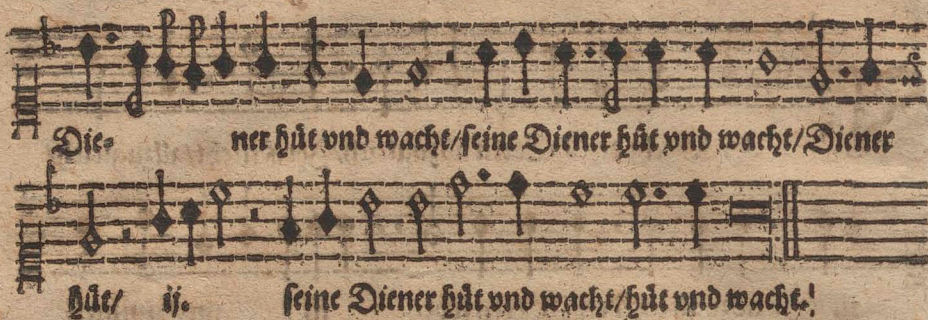 Die⸗ ner hüt vnd wacht/ seine Diener hüt vnd wacht/ Diener
hüt/ ij. seine Diener hüt vnd wacht/ hüt vnd wacht.